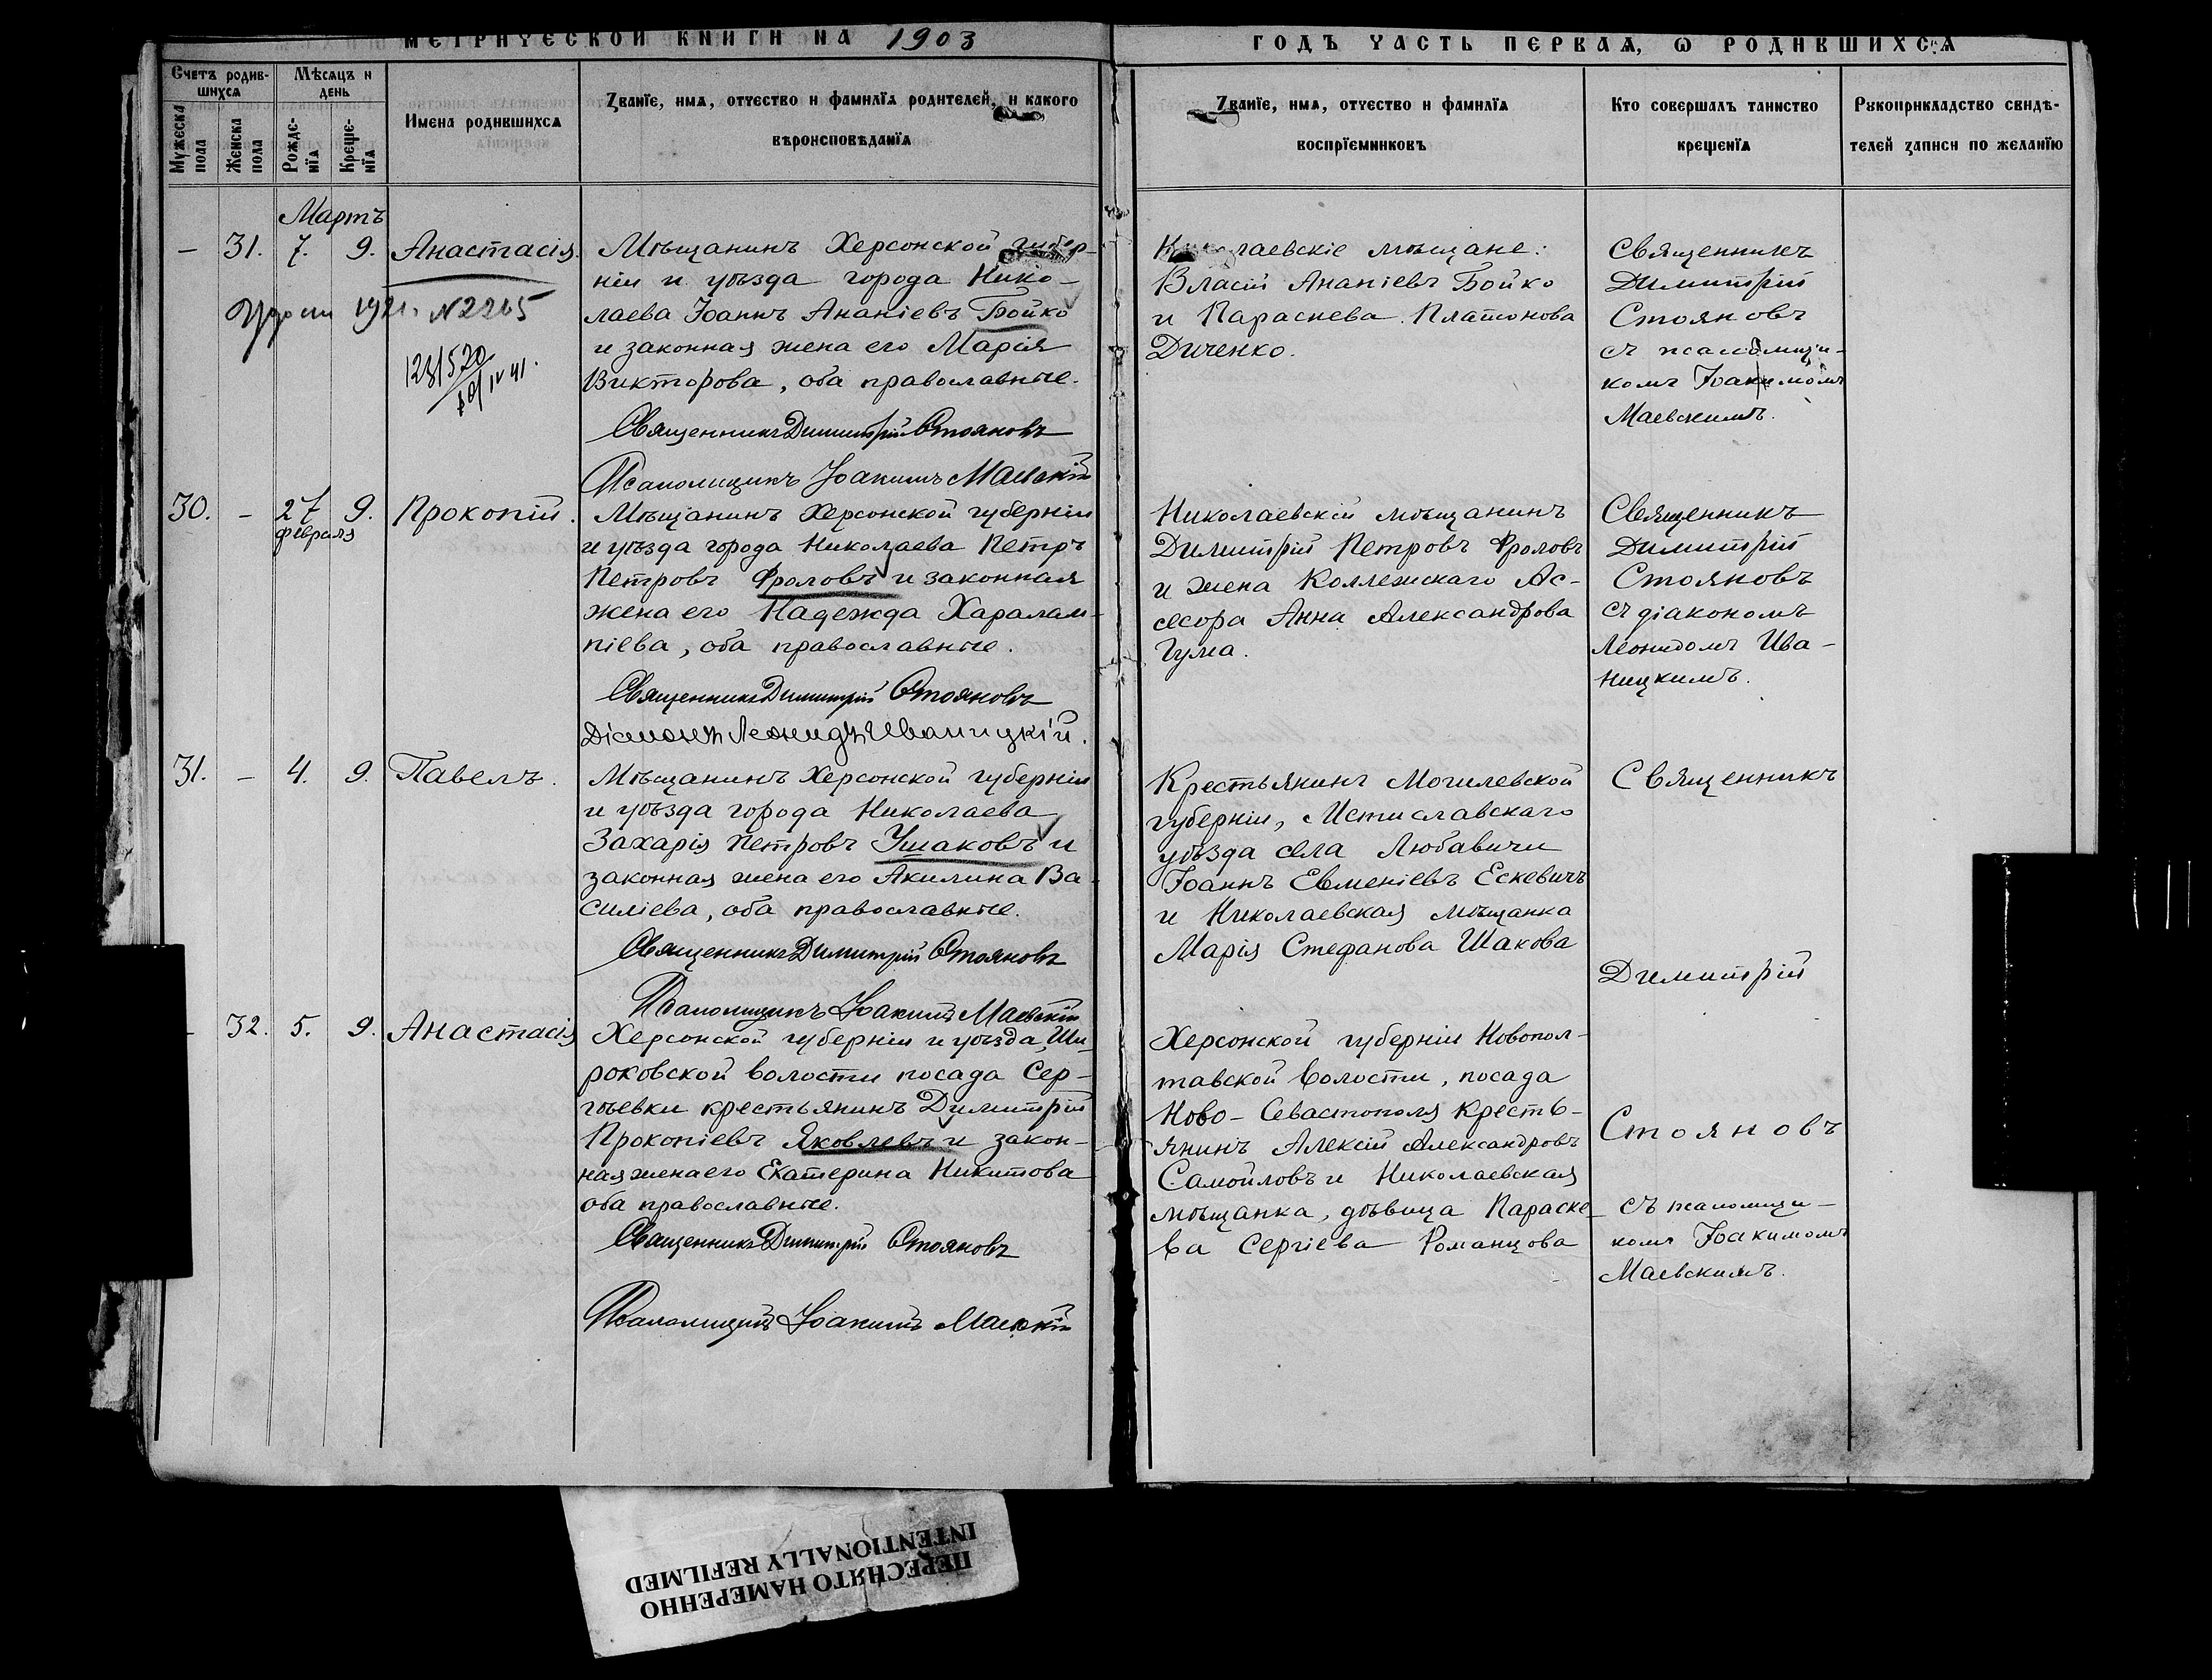 МЕТРИЧЕСКОЙ КНИГИ НА 1903
Счетъ родив-
шихся
Мѣсяцъ и
день
Мужеска
пола
Женска
пола
Рожде-
нїя
Креще-
нїя
Имена родившихся
Званїе, имя, отчество и фамилїя родителей, и какого
вѣроисповѣданїя
Мартъ
— 31. 7. 9. Анастасія.
1921. N2265
Мѣщанинъ Херсонской губер-
ніи и уѣзда города Нико-
лаева Іоаннъ Ананіевъ Бойко
и законная жена его Марія
Викторова, оба православные.
Священникъ Димитрій Стояновъ
Псаломщикъ Іоакимъ Маевскій
30. - 27 9. Прокопій.
февраля
Мѣщанинъ Херсонской губерніи
и уѣзда города Николаева Петръ
Петровъ Фроловъ и законная
жена его Надежда Харалам-
піева, оба православные.
Священникъ Димитрій Стояновъ
Діаконъ Леонидъ Иваницкій.
31. - 4. 9. Павелъ.
Мѣщанинъ Херсонской губерніи
и уѣзда города Николаева
Захарія Петровъ Ушаковъ и
законная жена его Акилина Ва-
силіева, оба православные.
Священникъ Димитрій Стояновъ
Псаломщикъ Іоакимъ Маевскій
- 32. 5. 9. Анастасія
Херсонской губерніи и уѣзда, Ши-
роковской волости посада Сер-
гѣевки крестьянинъ Димитрій
Прокопіевъ Яковлевъ и закон-
ная жена его Екатерина Никитова
оба православные.
Священникъ Димитрій Стояновъ
Псаломщикъ Іоакимъ Маевскій
ГОДЪ ЧАСТЬ ПЕРВАЯ, Ѡ РОДИВШИХСЯ
Званїе, имя, отчество и фамилїя
воспрїемниковъ
Кто совершалъ таинство
крещенїя
Рукоприкладство свидѣ-
телей записи по желанїю
Николаевскіе мѣщане:
Власій Ананіевъ Бойко
и Параскева Платонова
Диченко.
Священникъ
Димитрій
Стояновъ
съ псаломщи-
комъ Іоакимомъ
Маевскимъ.
Николаевскій мѣщанинъ
Димитрій Петровъ Фроловъ
и жена Коллежскаго Ас-
сесора Анна Александрова
Гума.
Священникъ
Димитрій
Стояновъ
съ діакономъ
Леонидомъ Ива-
ницкимъ.
Крестьянинъ Могилевской
губерніи, Мстиславскаго
уѣзда села Любавичи
Іоаннъ Евменіевъ Ескевичъ
и Николаевская мѣщанка
Марія Стефанова Шакова
Священникъ
Димитрій
Херсонской губерніи Новопол-
тавской волости, посада
Ново-Севастополя кресть-
янинъ Алексій Александровъ
Самойловъ и Николаевская
мѣщанка, дѣвица Параске-
ва Сергіева Романцова
Стояновъ
съ псаломщи-
комъ Іоакимомъ
Маевскимъ.
ПЕРЕСНЯТО НАМЕРЕННО
INTENTIONALLY REFILMED